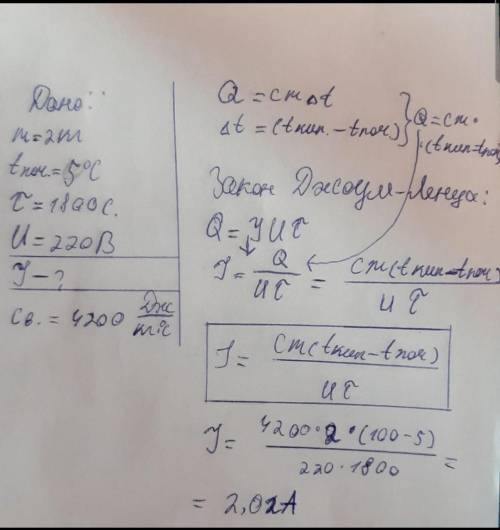 Дано:
m=2m
tноч.=5°C
τ=1800c.
U=220В
J-?
Cв.=4200 Дж/m°c
Q=cm∆t
∆t=(tкип.-tноч) } Q=cm·
·(tкип-tноч)
Закон Джоуля-Ленца:
Q=JUτ
J=Q/Uτ=cm(tкип-tноч)/Uτ
J=cm(tкип-tноч)/Uτ
J=4200·2·(100-5)/220·1800=
=2,02A